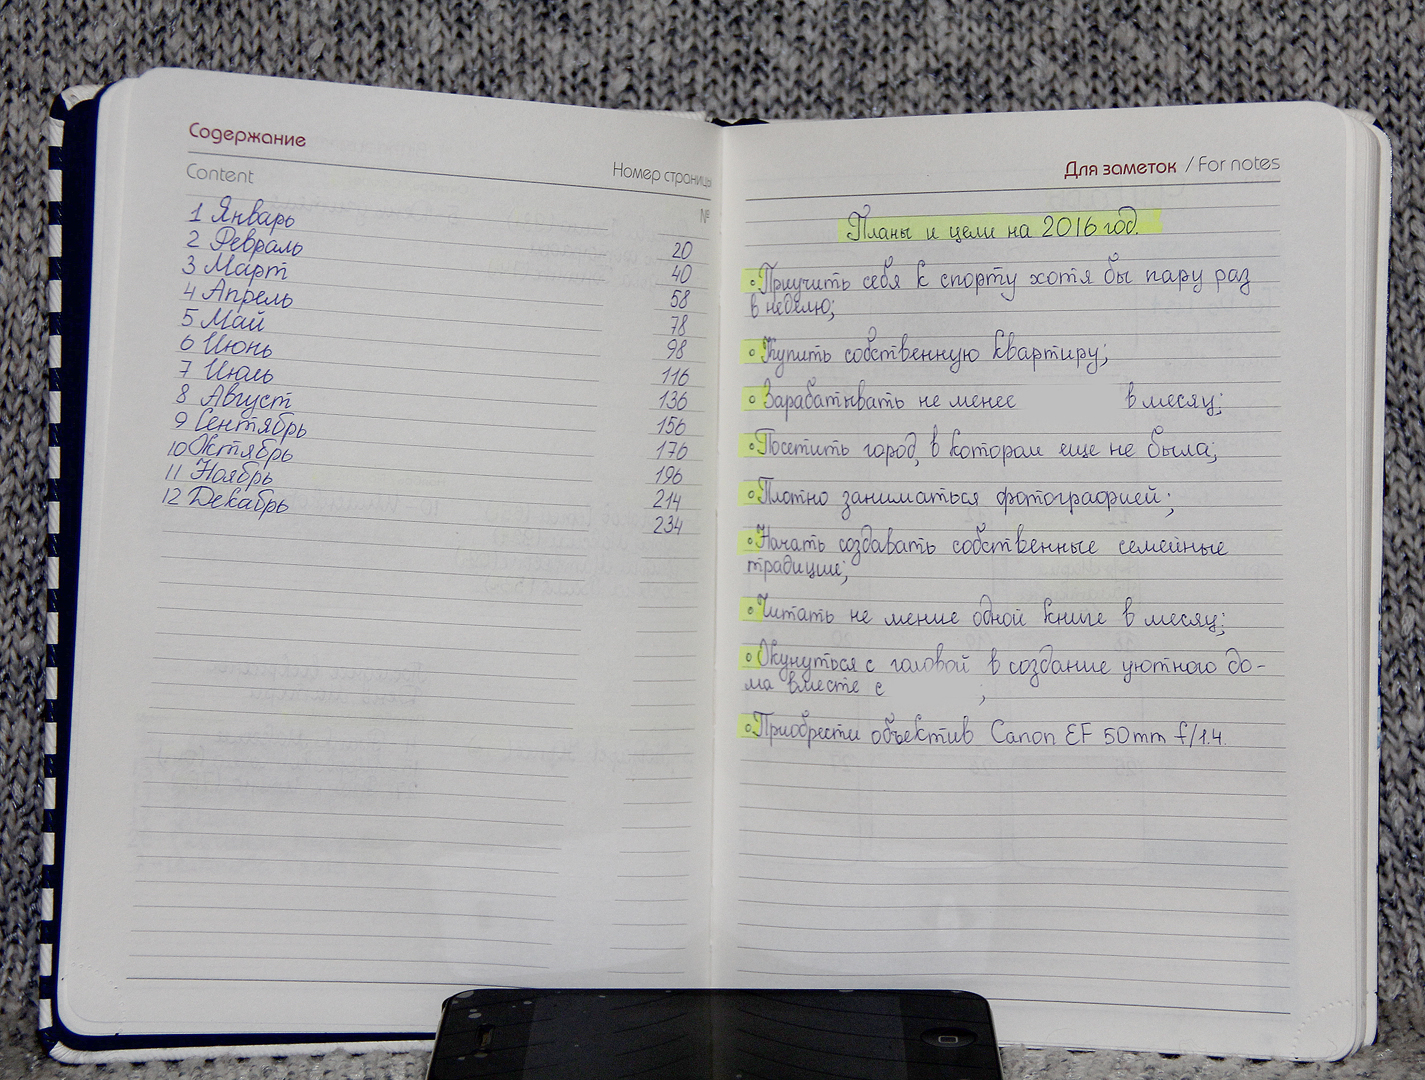 Содержание
Content
Номер страницы
№
1 Январь 20
2 Февраль 40
3 Март 58
4 Апрель 78
5 Май 98
6 Июнь 116
7 Июль 136
8 Август 156
9 Сентябрь 176
10 Октябрь 196
11 Ноябрь 214
12 Декабрь 234
Для заметок / For notes
Планы и цели на 2016 год.
Приучить себя к спорту хотя бы пару раз
в неделю;
Купить собственную квартиру;
Зарабатывать не менее в месяц;
Посетить город, в котором еще не была;
Плотно заниматься фотографией;
Начать создавать собственные семейные
традиции;
Читать не менше одной книге в месяц;
Окунуться с головой в создание уютного до-
ма вместе с ;
Приобрести объектив Canon EF 50mm f/1.4.